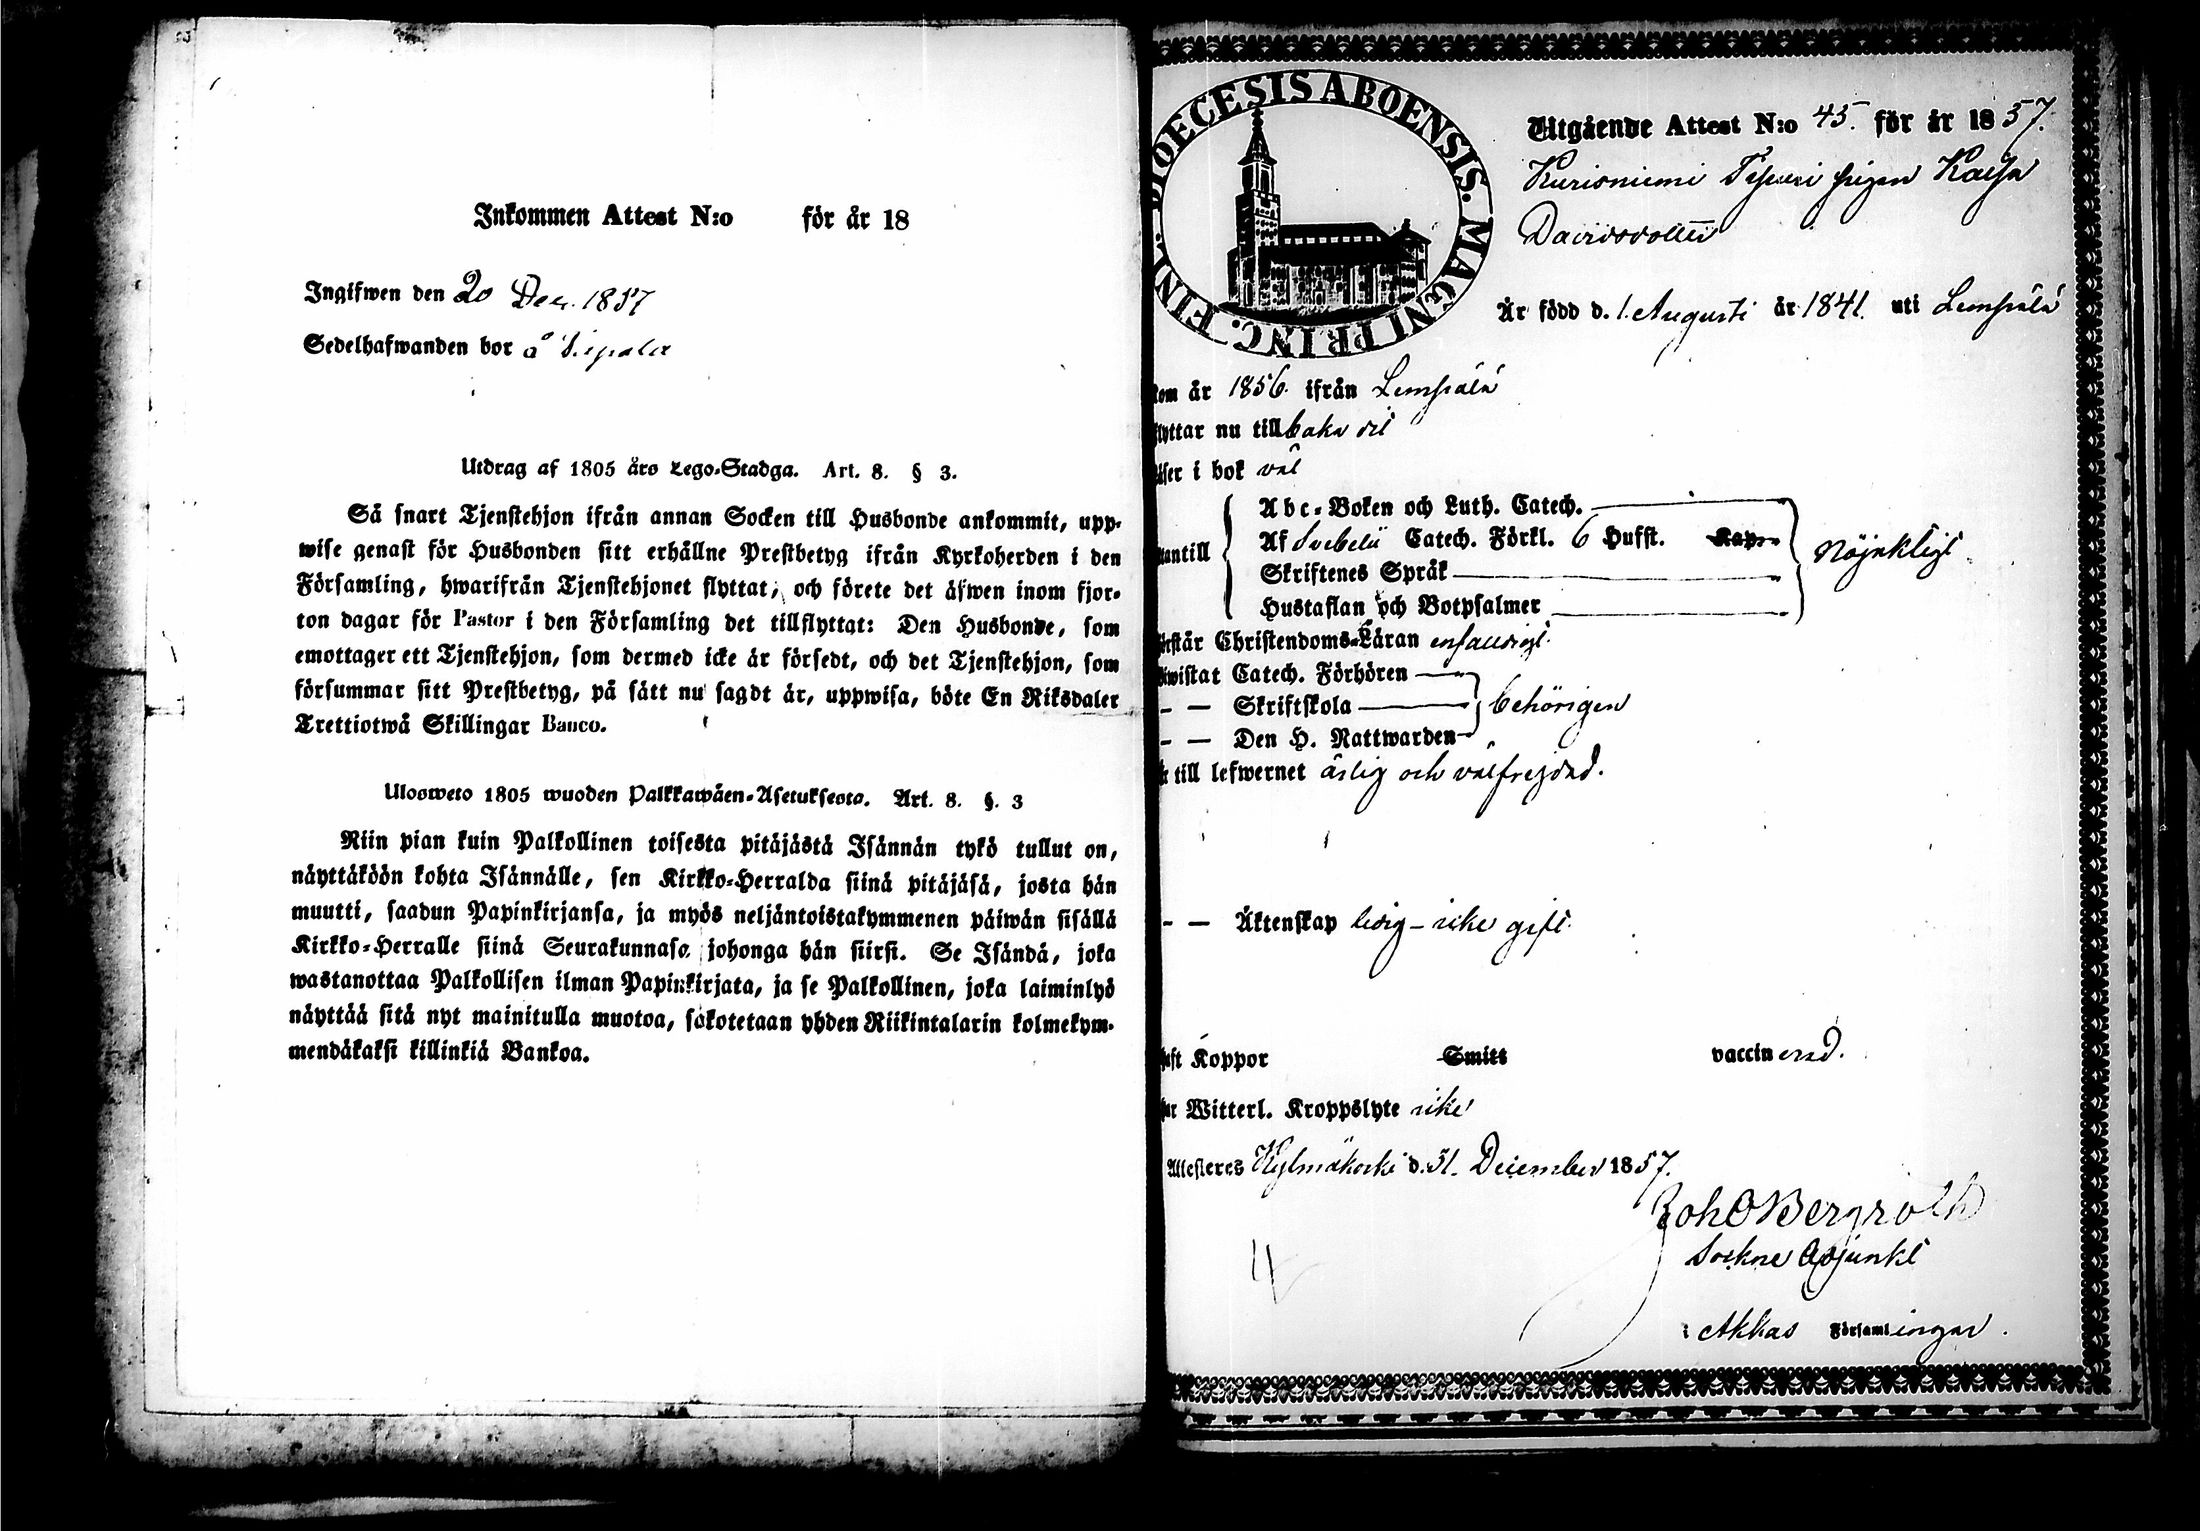 Inkommen Attest N:o för år 18
Ingifwen den 20 Dec. 1857
Sedelhafwanden bor å
Utdrag af 1805 års Lego-Stadga. Art. 8. § 3.
Så snart Tjenstehjon ifrån annan Socken till Husbonde ankommit, upp-
wise genast för Husbonden sitt erhållne Prestbetyg ifrån Kyrkoherden i den
Församling, hwarifrån Tjenstehjonet flyttat, och förete det äfwen inom fjor-
ton dagar för Pastor i den Församling det tillflyttat: Den Husbonde, som
emottager ett Tjenstehjon, som dermed icke är försedt, och det Tjenstehjon, som
försummar sitt Prestbetyg, på sätt nu sagdt är, uppwisa, böte En Riksdaler
Trettiotwå Skillingar Banco.
Ulosweto 1805 wuoden Palkkawäen-Asetuksesta. Art. 8. §. 3
Niin pian kuin Palkollinen toisesta pitäjästä Isännän tykö tullut on,
näyttäköön kohta Isännälle, sen Kirkko-Herralda siinä pitäjäsä, josta hän
muutti, saadun Papinkirjansa, ja myös neljäntoistakymmenen päiwän sisällä
Kirkko-Herralle siinä Seurakunnasa johonga hän siirsi. Se Isändä, joka
wastanottaa Palkollisen ilman Papinkirjata, ja se Palkollinen, joka laiminlyö
näyttää sitä nyt mainitulla muotoa, sakotetaan yhden Riikintalarin kolmekym-
mendäkaksi killinkiä Bankoa.
DIOECESIS ABOENSIS. MAGNI PRINC. FINL.
Utgående Attest N:o 45. för år 1857.
Kurisniemi pigan Kaisa
Davidsdotter
Är född d. 1. Augusti år 1841. uti Lempälä
Kom år 1856. ifrån Lempälä
flyttar nu tillbaka dit
läser i bok väl
utantill
Abc-Boken och Luth. Catech.
Af Svebelii Catech. Förkl. 6 Hufst. Kap.
Skriftenes Språk
Hustaflan och Botpsalmer
Nöjaktligt
förstår Christendoms-Läran enfaldigt.
Biwistat Catech. Förhören
— — Skriftskola
— — Den H. Nattwarden
behörigen
Är till lefwernet ärlig och välfrejdad.
— — Äktenskap ledig – icke gift.
haft Koppor Smitt vaccinerad.
har Witterl. Kroppslyte icke
Attesteres Kylmäkoski d. 31. December 1857.
Joh O Bergroth
Sockne Adjunkt
i Akkas Församlingar.